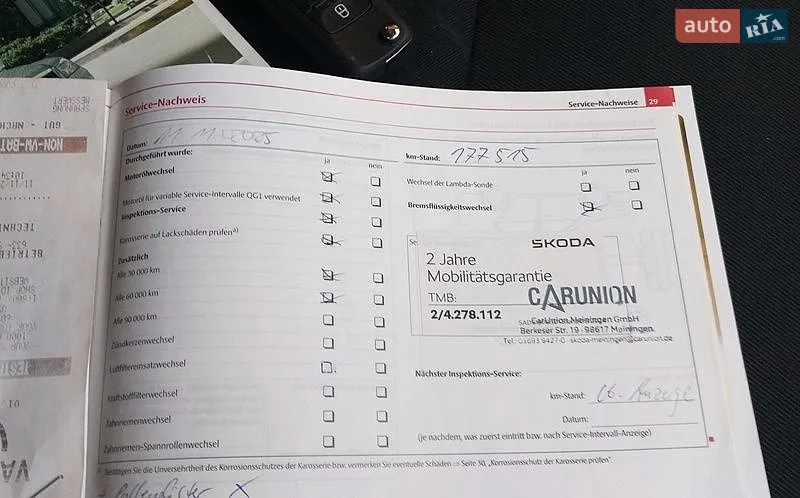 auto RIA.com
Service-Nachweis
Service-Nachweise 29
Datum: 11.11.2025
km-Stand: 177 515
Durchgeführt wurde: ja nein
ja nein
Motorölwechsel
Wechsel der Lambda-Sonde
Motoröl für variable Service-Intervalle QG1 verwendet
Bremsflüssigkeitswechsel
Inspektions-Service
Karosserie auf Lackschäden prüfen a)
Zusätzlich
Alle 30 000 km
Alle 60 000 km
Alle 90 000 km
Zündkerzenwechsel
Luftfiltereinsatzwechsel
Kraftstofffilterwechsel
Zahnriemenwechsel
Zahnriemen-Spannrollenwechsel
ŠKODA
2 Jahre
Mobilitätsgarantie
TMB:
2/4.278.112
CARUNION
CarUnion Meiningen GmbH
Berkeser Str. 19 · 98617 Meiningen
skoda-meiningen@carunion.de
Nächster Inspektions-Service:
km-Stand: lt. Anzeige
Datum:
(je nachdem, was zuerst eintritt bzw. nach Service-Intervall-Anzeige)
a) Bestätigen Sie die Unversehrtheit des Korrosionsschutzes der Karosserie bzw. vermerken Sie eventuelle Schäden ⇒ Seite 30, „Korrosionsschutz der Karosserie prüfen“.
+ Pollenfilter X
SPANNUNG
GUT - NACH
NON-VW-BAT